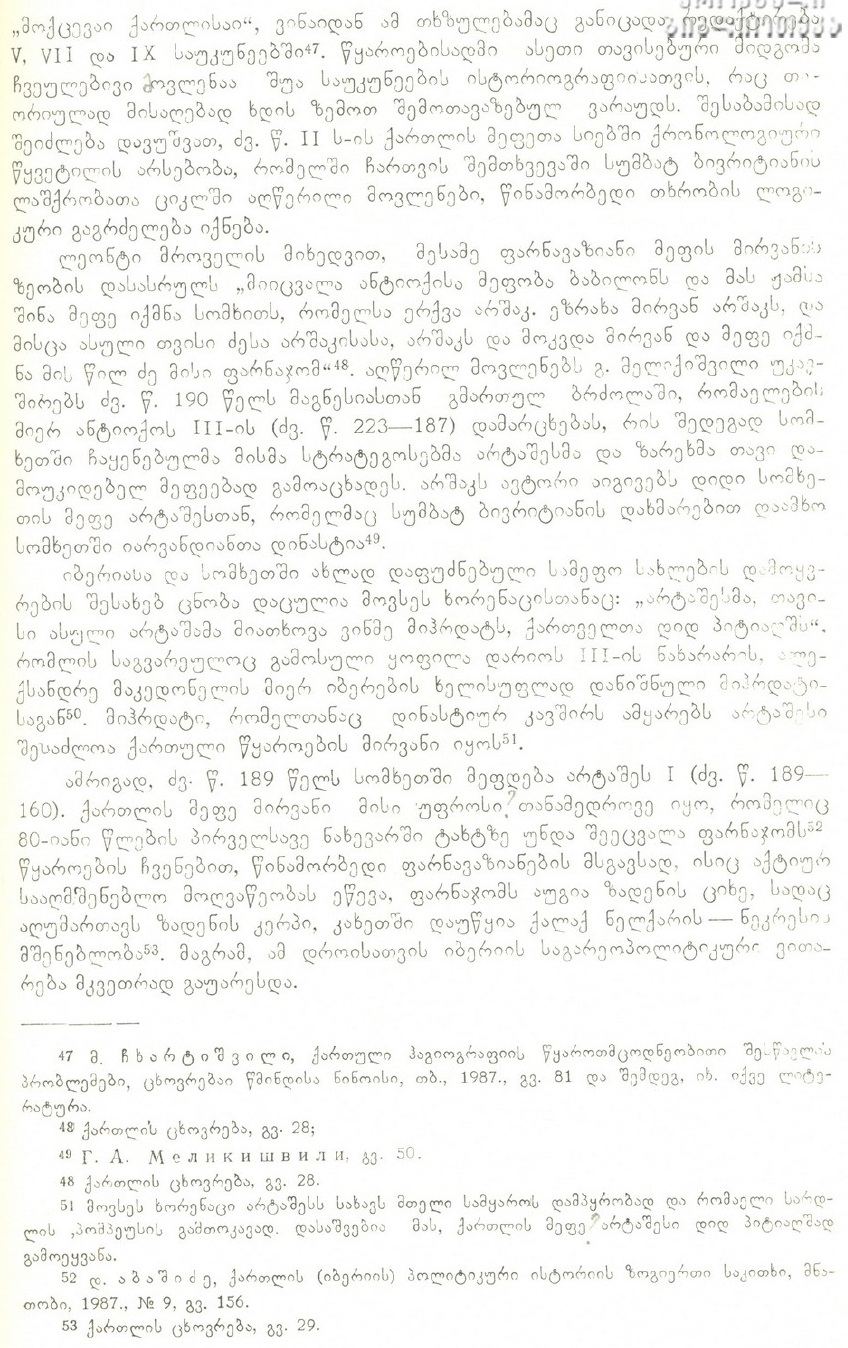 „მოქცევაი ქართლისაი“, ვინაიდან ამ თხზულებამაც განიცადა რედაქტირება
V, VII და IX საუკუნეებში47. წყაროებისადმი ასეთი თავისებური მიდგომა
ჩვეულებივი მოვლენაა შუა საუკუნეების ისტორიოგრაფიისათვის, რაც
ორიულად მისაღებად ხდის ზემოთ შემოთავაზებულ ვარაუდს. შესაბამისად
შეიძლება დავუშვათ, ძვ. წ. II ს-ის ქართლის მეფეთა სიებში ქრონოლოგიური
წყვეტილის არსებობა, რომელში ჩართვის შემთხვევაში სუმბატ ბივრიტიანის
ლაშქრობათა ციკლში აღწერილი მოვლენები, წინამორბედი თხრობის ლოგი-
კური გაგრძელება იქნება.
ლეონტი მროველის მიხედვით, მესამე ფარნავაზიანი მეფის მირვანის
ზეობის დასასრულს „მიიცვალა ანტიოქისა მეფობა ბაბილონს და მას ჟამსა
შინა მეფე იქმნა სომხითს, რომელსა ერქვა არშაკ. ეზრახა მირვან არშაკს, და
მისცა ასული თვისი ძესა არშაკისასა, არშაკს და მოკვდა მირვან და მეფე იქმ-
ნა მის წილ ძე მისი ფარნაჯომ“48. აღწერილ მოვლენებს გ. მელიქიშვილი უკავ-
შირებს ძვ. წ. 190 წელს მაგნესიასთან გმართულ ბრძოლაში, რომაელების
მიერ ანტიოქოს III-ის (ძვ. წ. 223—187) დამარცხებას, რის შედეგად სომ-
ხეთში ჩაყენებულმა მისმა სტრატეგოსებმა არტაშესმა და ზარეხმა თავი და-
მოუკიდებელ მეფეებად გამოაცხადეს. არშაკს ავტორი აიგივებს დიდი სომხე-
თის მეფე არტაშესთან, რომელმაც სუმბატ ბივრიტიანის დახმარებით დაამხო
სომხეთში იარვანდიანთა დინასტია49.
იბერიასა და სომხეთში ახლად დაფუძნებული სამეფო სახლების დამოყვ-
რების შესახებ ცნობა დაცულია მოვსეს ხორენაცისთანაც: „არტაშესმა, თავი-
სი ასული არტაშამა მიათხოვა ვინმე მიჰრდატს, ქართველთა დიდ პიტიახშს“,
რომლის საგვარეულოც გამოსული ყოფილა დარიოს III-ის ნახარარის, ალე-
ქსანდრე მაკედონელის მიერ იბერების ხელისუფლად დანიშნული მიჰრდატი-
საგან50. მიჰრდატი, რომელთანაც დინასტიურ კავშირს ამყარებს არტაშესი
შესაძლოა ქართული წყაროების მირვანი იყოს51.
ამრიგად, ძვ. წ. 189 წელს სომხეთში მეფდება არტაშეს I (ძვ. წ. 189—
160). ქართლის მეფე მირვანი მისი უფროსი თანამედროვე იყო, რომელიც
80-იანი წლების პირველსავე ნახევარში ტახტზე უნდა შეეცვალა ფარნაჯომს52
წყაროების ჩვენებით, წინამორბედი ფარნავაზიანების მსგავსად, ისიც აქტიურ
სააღმშენებლო მოღვაწეობას ეწევა, ფარნაჯომს აუგია ზადენის ციხე, სადაც
აღუმართავს ზადენის კერპი, კახეთში დაუწყია ქალაქ ნელქარის — ნეკრესის
მშენებლობა53. მაგრამ, ამ დროისათვის იბერიის საგარეოპოლიტიკური ვითა-
რება მკვეთრად გაუარესდა.
47 მ. ჩხარტიშვილი, ქართული ჰაგიოგრაფიის წყაროთმცოდნეობითი შესწავლის
პრობლემები, ცხოვრებაი წმინდისა ნინოისი, თბ., 1987., გვ. 81 და შემდეგ, იხ. იქვე ლიტე-
რატურა.
48 ქართლის ცხოვრება, გვ. 28;
49 Г. А. Меликишвили, გვ. 50.
48 ქართლის ცხოვრება, გვ. 28.
51 მოვსეს ხორენაცი არტაშესს სახავს მთელი სამყაროს დამპყრობად და რომაელი სარდ-
ლის ,პომპეუსის გამთოკავად. დასაშვებია მას, ქართლის მეფე არტაშესი დიდ პიტიახშად
გამოეყვანა.
52 დ. აბაშიძე, ქართლის (იბერიის) პოლიტიკური ისტორიის ზოგიერთი საკითხი, მნა-
თობი, 1987., № 9, გვ. 156.
53 ქართლის ცხოვრება, გვ. 29.